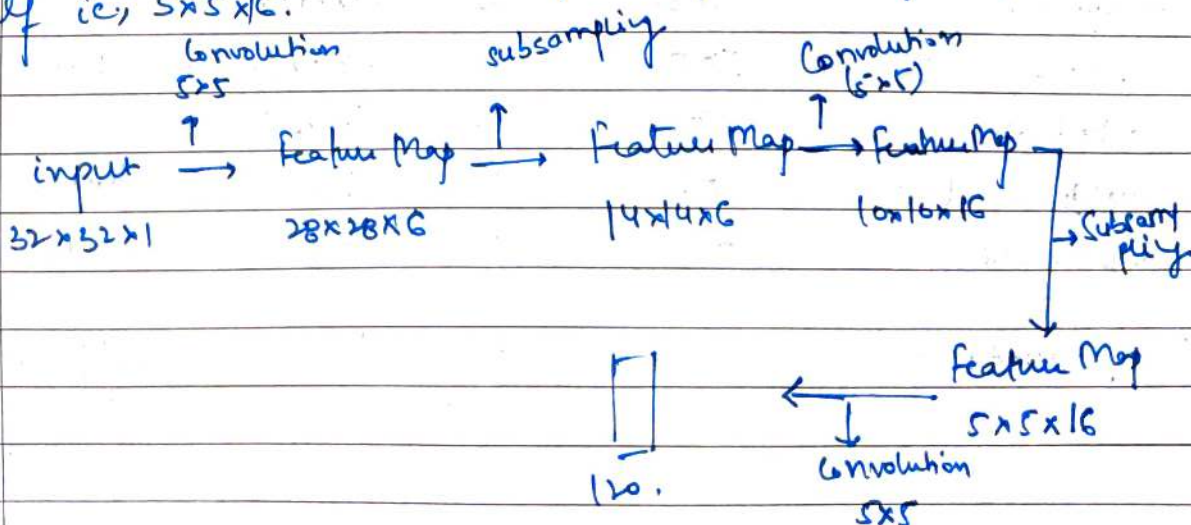 of ie, 5x5x16.
Convolution subsampling Convolution
5x5 (5x5)
input → Feature Map → Feature Map → Feature Map
32x32x1 28x28x6 14x14x6 10x10x16 → Subsam
pling
Feature Map
5x5x16
120. Convolution
5x5